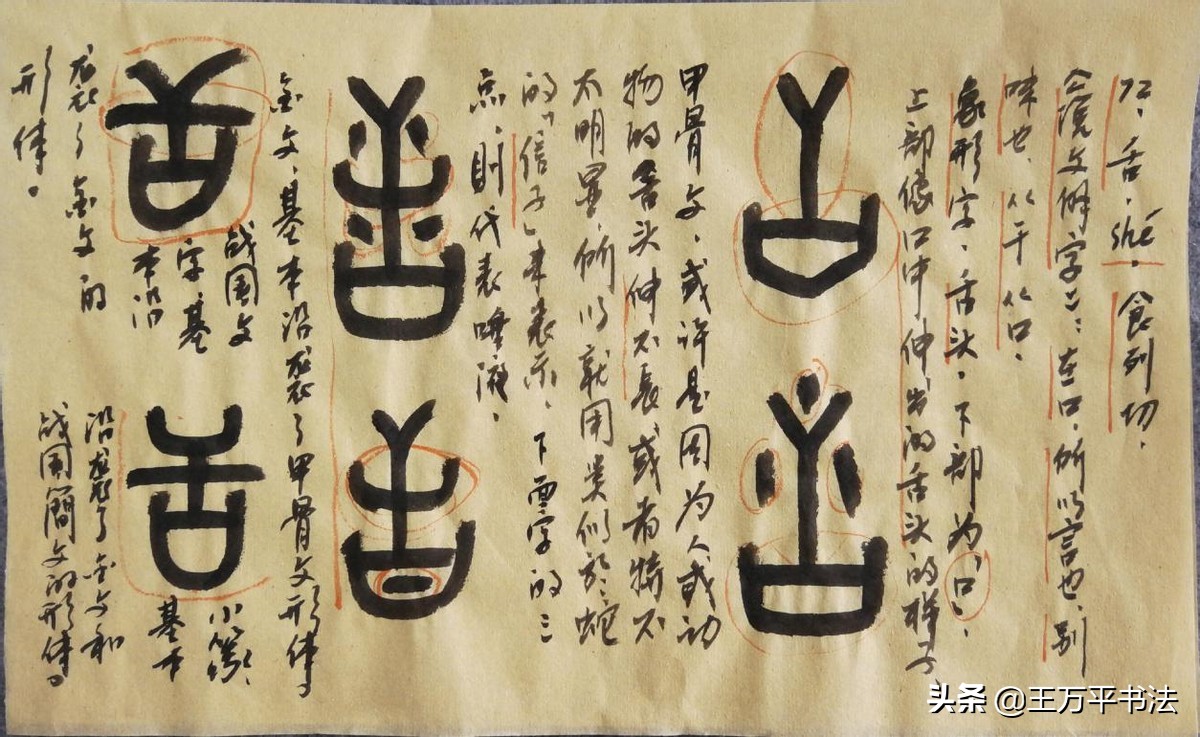 72、舌、shé。食列切，
《说文解字》：在口，所以言也、别
味也，从干从口。
象形字，舌头。下部为“口”，
上部像口中伸出的舌头的样子，
甲骨文，或许是因为人或动
物的舌头伸不长，或者特不
太明显，所以就用类似於蛇
的「信子」来表示。下面字的三
点，則代表唾液。
金文，基本沿袭了甲骨文形体。
战国文
字基
本沿
袭了金文的
形体。
小篆，
基本
沿袭了金文和
战国簡文的形体。
头条 @王万平书法